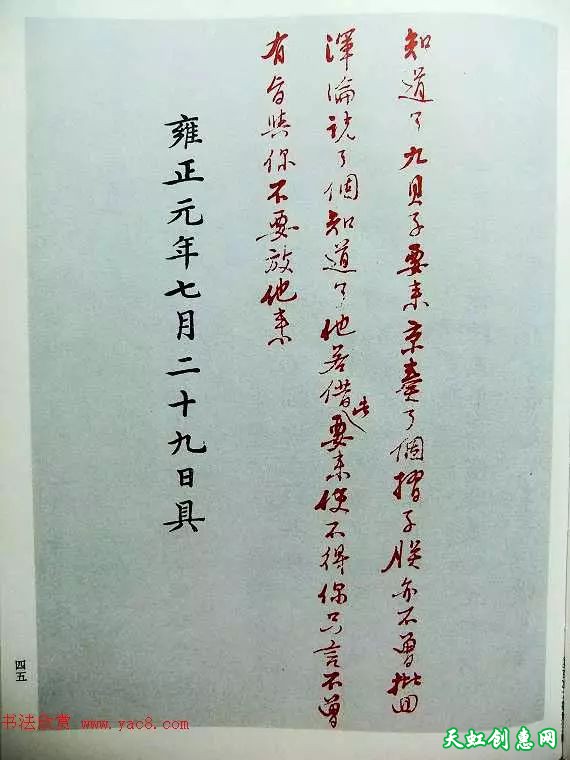 知道了九貝子要來京奏了個摺子朕亦不曾批回
渾淪說了個知道了他若借此要來使不得你只言不曾
有旨與你不要放他來
雍正元年七月二十九日具
四五
书法欣赏 www.yac8.com
天虹创惠网